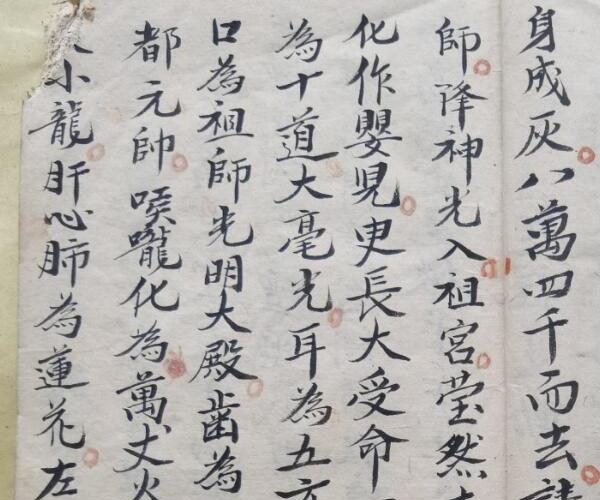 身成灰八萬四千而去
師降神光入祖宮瑩然
化作嬰児更長大受命
為十道大毫光耳為五
口為祖師光明大殿齒為
都元帥喉嚨化為萬丈火
小龍肝心肺為蓮花左